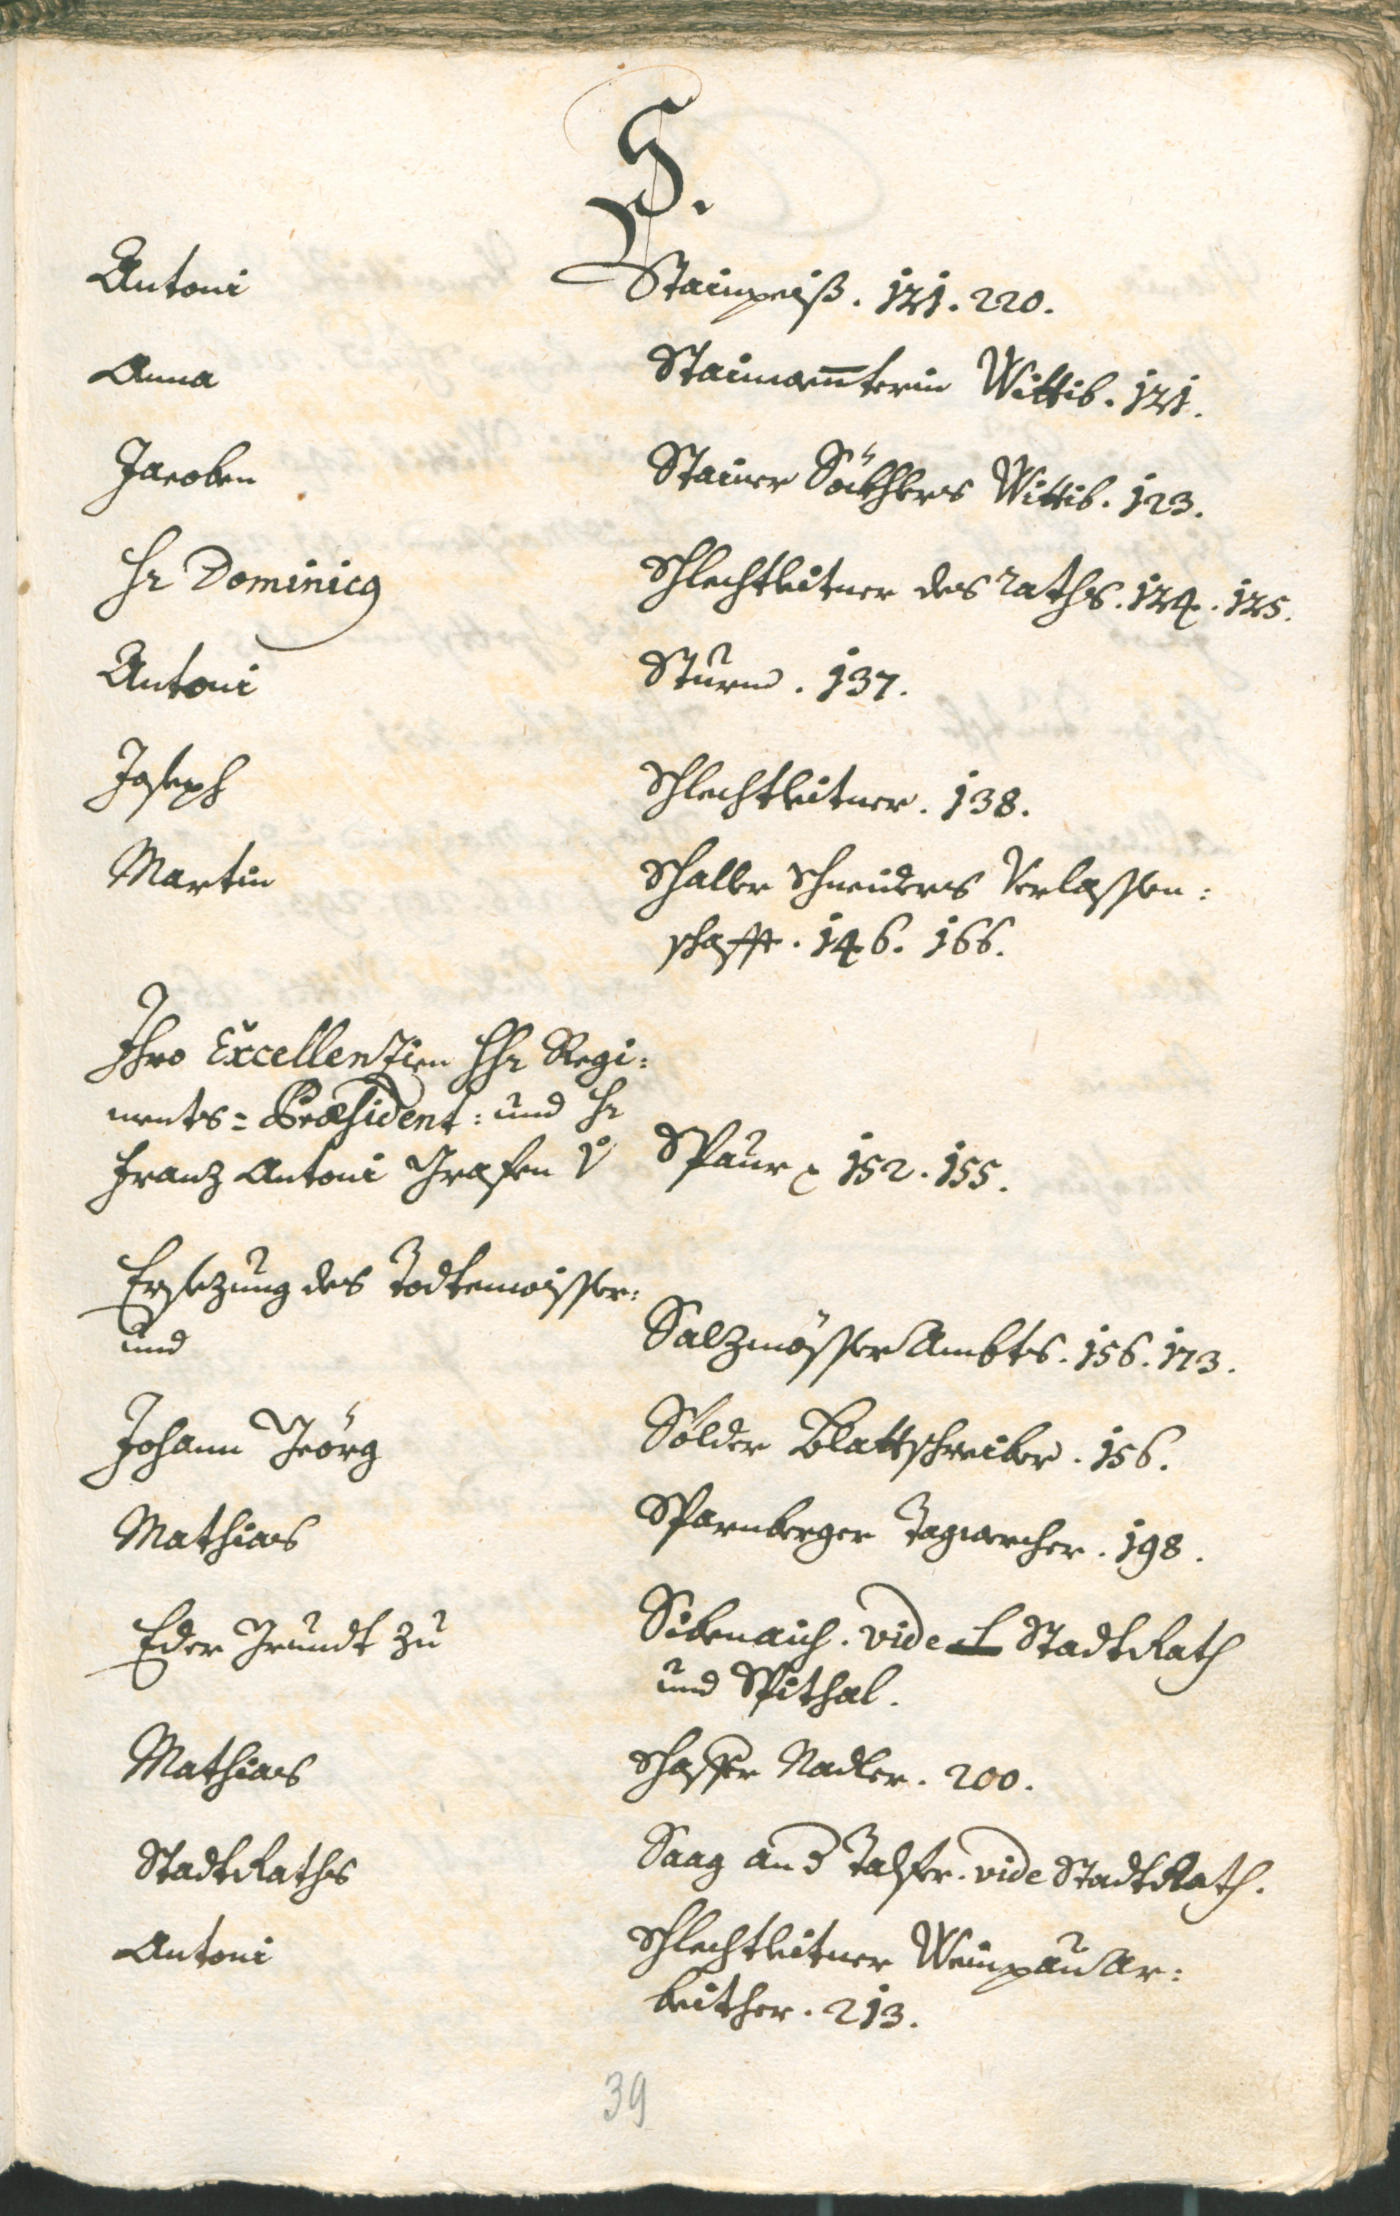 S.
Antoni Stainpeiß. 121. 220.
Anna Stainmannterin Wittib. 121.
Jacoben Stainer Söckhlers Wittib. 123.
Hr Dominicq Schlechtleitner des raths. 124. 125.
Antoni Sturm. 137.
Joseph Schlechtleitner. 138.
Martin Schaller Schneiders Verlassen:
schafft. 146. 166.
Ihro Excellenzien HHr Regi:
ments= Præsident: und Hr
Franz Antoni Grafen v Spaur 152. 155.
Ersezung des Todtenmösser:
und Salzmösser Ambts. 156. 173.
Johann Geörg Sölder Blattschreiber. 156.
Mathias Sparnberger Tagwercher. 198.
Eder Grundt zu Sibenaich. vide StadtRath
und Spithal.
Mathias Schaffer Nadler. 200.
StadtRaths Saag an d Talfer. vide StadtRath.
Antoni Schlechtleitner Weinpau Ar:
beither. 213.
39